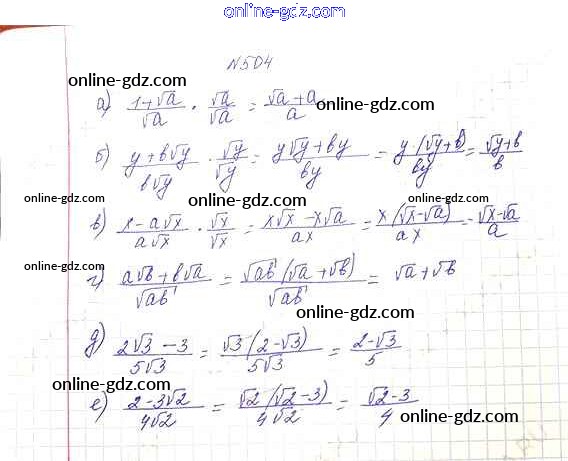 online-gdz.com
N504
online-gdz.com
а) (1+√a)/√a · √a/√a = (√a+a)/a online-gdz.com
online-gdz.com
б) (y+b√y)/(b√y) · √y/√y = (y√y+by)/(by) = (y·(√y+b))/(by) = (√y+b)/b
online-gdz.com online-gdz.com online-gdz.com
в) (x-a√x)/(a√x) · √x/√x = (x√x-x√a)/(ax) = (x(√x-√a))/(ax) = (√x-√a)/a
online-gdz.com
г) (a√b+b√a)/√ab = (√ab(√a+√b))/√ab = √a+√b
online-gdz.com online-gdz.com
д) (2√3-3)/(5√3) = (√3(2-√3))/(5√3) = (2-√3)/5
online-gdz.com
е) (2-3√2)/(4√2) = (√2(√2-3))/(4√2) = (√2-3)/4 online-gdz.com
online-gdz.com